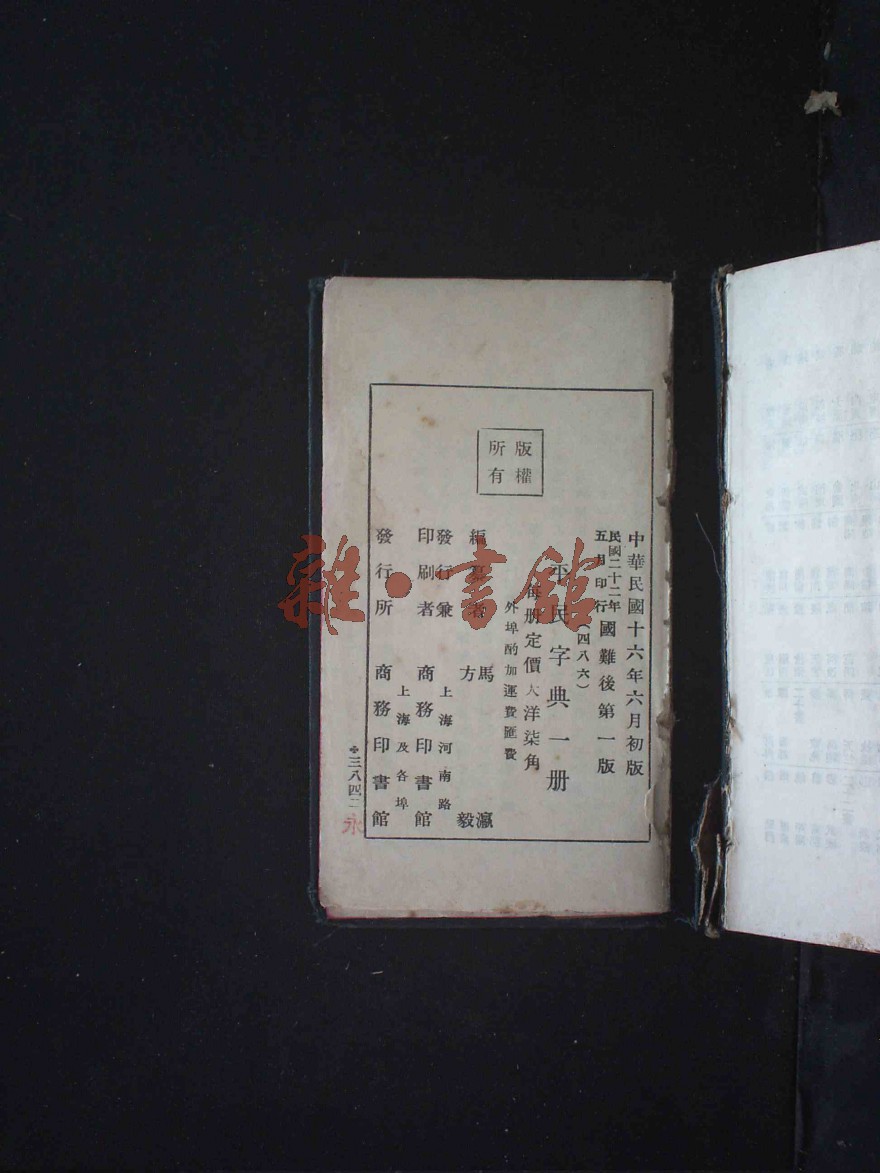 版權
所有
中華民國十六年六月初版
民國二十二年
五月印行
國難後第一版
(四八六)
平民字典一册
每册定價大洋柒角
外埠酌加運費匯費
編纂者
馬瀛
方毅
發行兼
印刷者
上海河南路
商務印書館
發行所
上海及各埠
商務印書館
三八四二
永
雜·書館